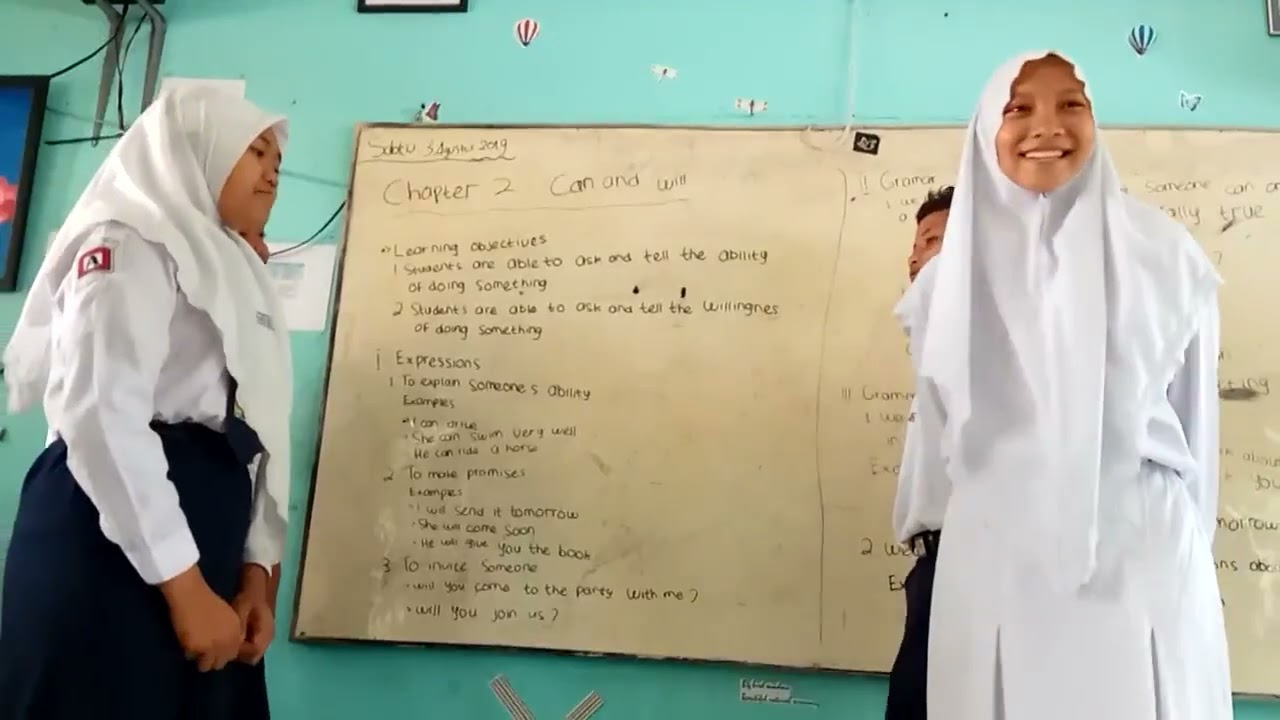 Sabtu 3 Agustus 2019
Chapter 2 Can and will
Learning objectives
1 Students are able to ask and tell the ability
of doing something
2 Students are able to ask and tell the willingnes
of doing something
i Expressions
1 To explan someone's ability
Examples
• I can drive
• She can swim very well
He can ride a horse
2 To make promises
Examples
• I will send it tomorrow
• She will come soon
• He will give you the book
3 To invite someone
• will you come to the party with me?
• will you join us?
II Gramar
1 we
Someone can
ally true
?
III Gramar
1 we
in
Exa
abou
you
morrow
2 we
ns abo
Ex
A